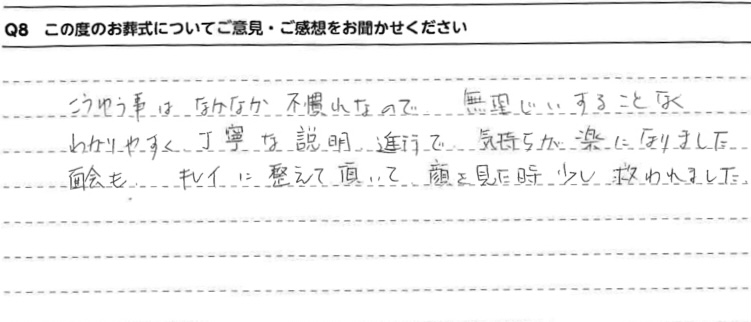 Q8 この度のお葬式についてご意見・ご感想をお聞かせください
こうゆう事は なかなか 不慣れなので 無理じいすることなく
わかりやすく、丁寧な説明、進行で 気持ちが楽になりました
面会も、キレイに整えて頂いて 顔を見た時 少し救われました。